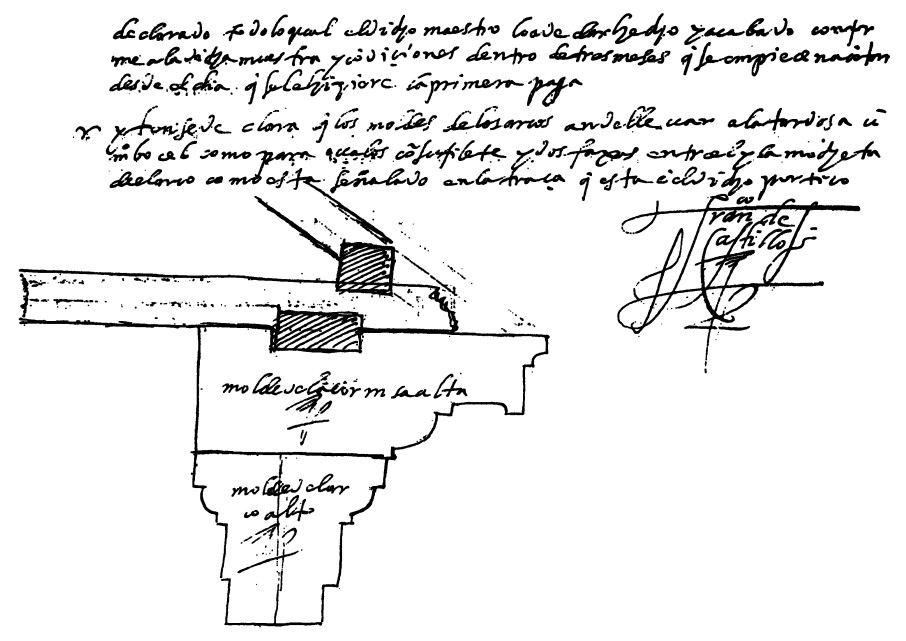 declarado todo lo qual el dicho maestro lo a de dar hecho y acabado confor
me a la dicha muestra y cōdiciones dentro de tres meses q̄ se empieçen a cōtar
desde el dia q̄ se le hiziere la primera paga
y tan se declara q̄ los moldes de los arcos an de lleuar a la tardosa ū
bocel como para con su filete y dos faxas entre el y la mocheta
del arco como esta señalado en la traça q̄ esta del dicho portico
fran^co de
castillo
molde de la cornisa alta
molde del ar
co alto